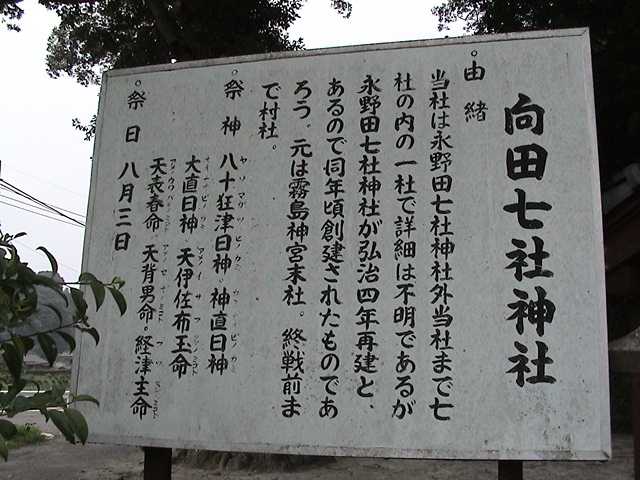 向田七社神社
°由緒
当社は永野田七社神社外当社まで七
社の内の一社で詳細は不明であるが
永野田七社神社が弘治四年再建と、
あるので同年頃創建されたものであ
ろう。元は霧島神宮末社。終戦前ま
で村社。
°祭神 八十狂津日神。神直日神
大直日神 天伊佐布玉命
天表春命 天背男命。経津主命
°祭日 八月三日